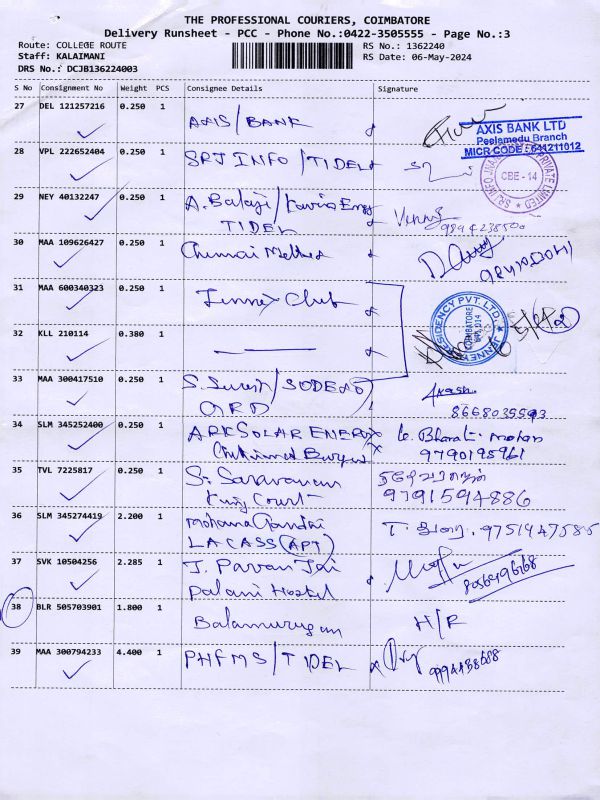 THE PROFESSIONAL COURIERS, COIMBATORE
Delivery Runsheet - PCC - Phone No.:0422-3505555 - Page No.:3
Route: COLLEGE ROUTE
RS No.: 1362240
Staff: KALAIMANI
RS Date: 06-May-2024
DRS No.: DCJB136224003
S No Consignment No Weight PCS Consignee Details Signature
27 DEL 121257216 0.250 1 AXIS / BANK
AXIS BANK LTD
Peelamedu Branch
MICR CODE : 641211012
28 VPL 222652404 0.250 1 SRJ INFO / TIDEL
CBE - 14
29 NEY 40132247 0.250 1 A. Balaji /
TIDEL
30 MAA 109626427 0.250 1 Chennai
31 MAA 600340323 0.250 1 Club
JENNEY RESIDENCY PVT. LTD.
COIMBATORE
32 KLL 210114 0.380 1
33 MAA 300417510 0.250 1
8668035593
34 SLM 345252400 0.250 1 ARK SOLAR ENERGY Bharati mohan
9790195961
35 TVL 7225817 0.250 1 S. Saravanan
King Court
9791594886
36 SLM 345274419 2.200 1 Mohana Gandhi T. 9751447585
LA CASS (APT)
37 SVK 10504256 2.285 1 J. Pavan Jai
Palani Hostel
8056496168
38 BLR 505703901 1.800 1 Balamurugan H/R
39 MAA 300794233 4.400 1 PHFMS / TIDEL